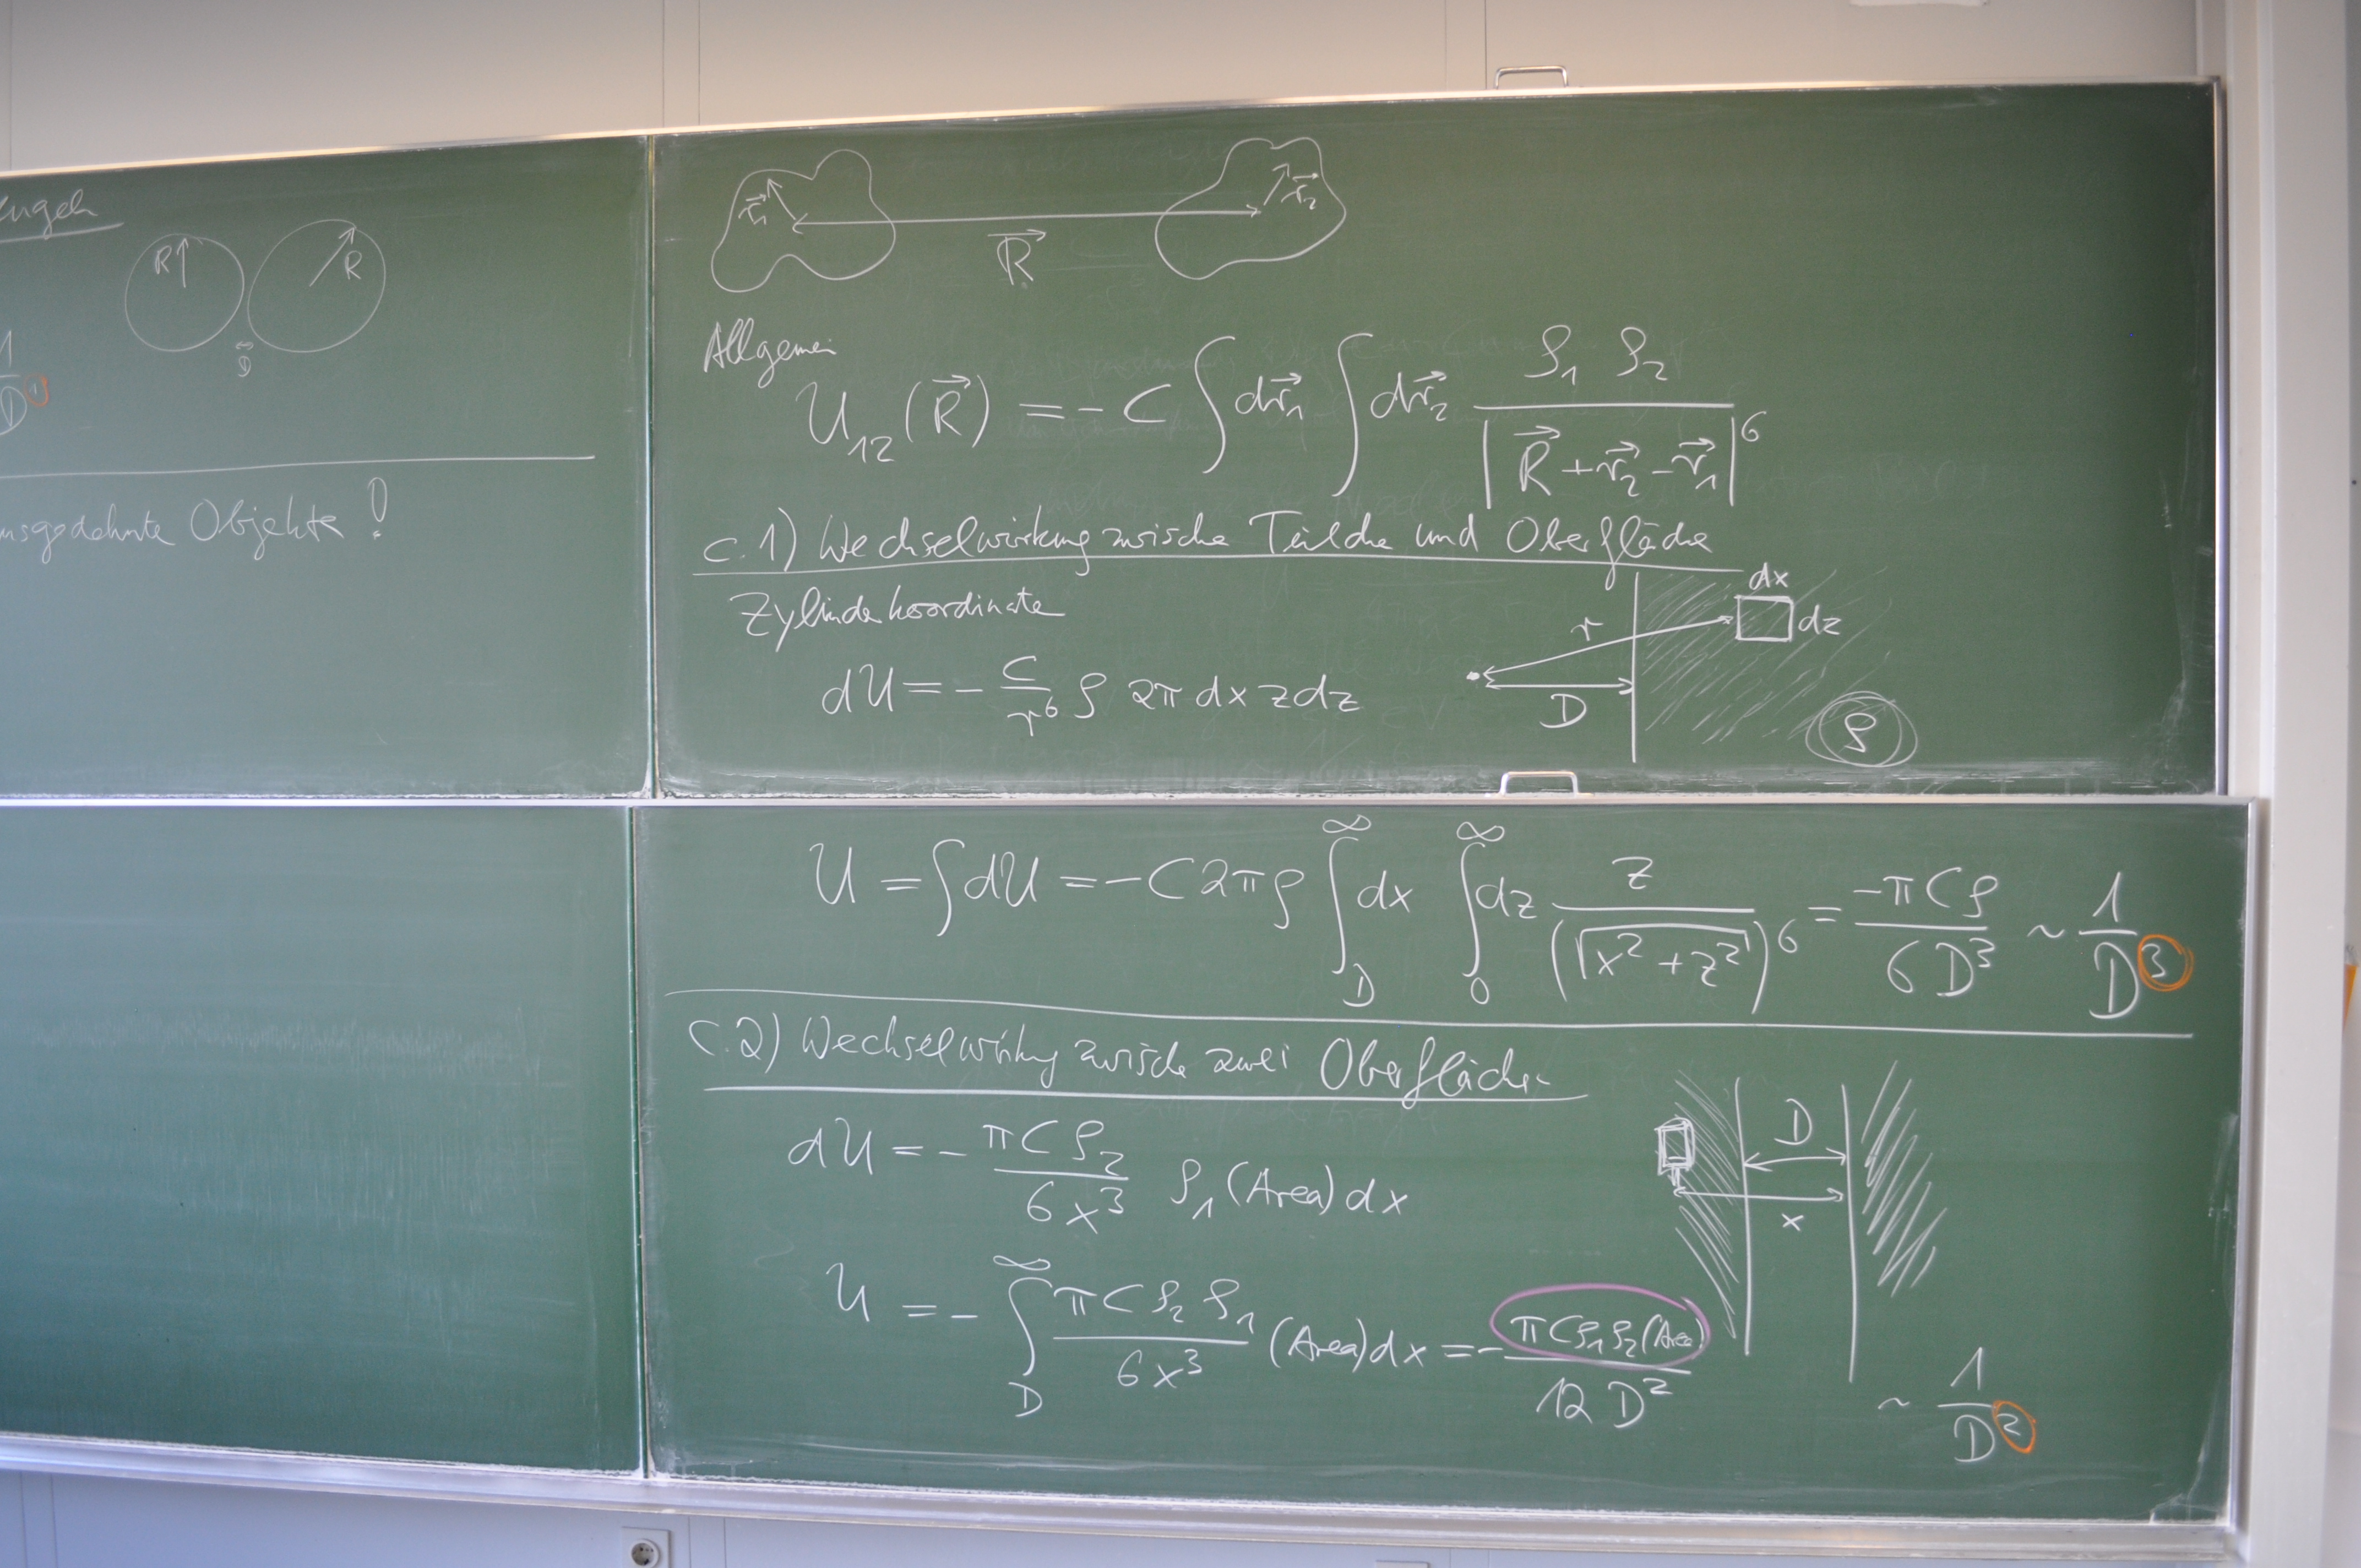 R R
D
1
D^1
ausgedehnte Objekte!
r⃗₁ r⃗₂
R⃗
Allgemein
U₁₂(R⃗) = - C ∫ dr⃗₁ ∫ dr⃗₂ ρ₁ ρ₂ / |R⃗ + r⃗₂ - r⃗₁|⁶
C.1) Wechselwirkung zwische Teilche und Oberfläche
Zylinderkoordinate
dx
dz
r
D
ρ
dU = - C/r⁶ ρ 2π dx z dz
U = ∫ dU = - C 2π ρ ∫_D^∞ dx ∫_0^∞ dz z / (√(x² + z²))⁶ = -π C ρ / 6 D³ ~ 1/D³
C.2) Wechselwirkung zwische zwei Oberfläche
D
x
dU = - π C ρ₂ / 6 x³ ρ₁ (Area) dx
U = - ∫_D^∞ π C ρ₂ ρ₁ / 6 x³ (Area) dx = - π C ρ₁ ρ₂ (Area) / 12 D² ~ 1/D²